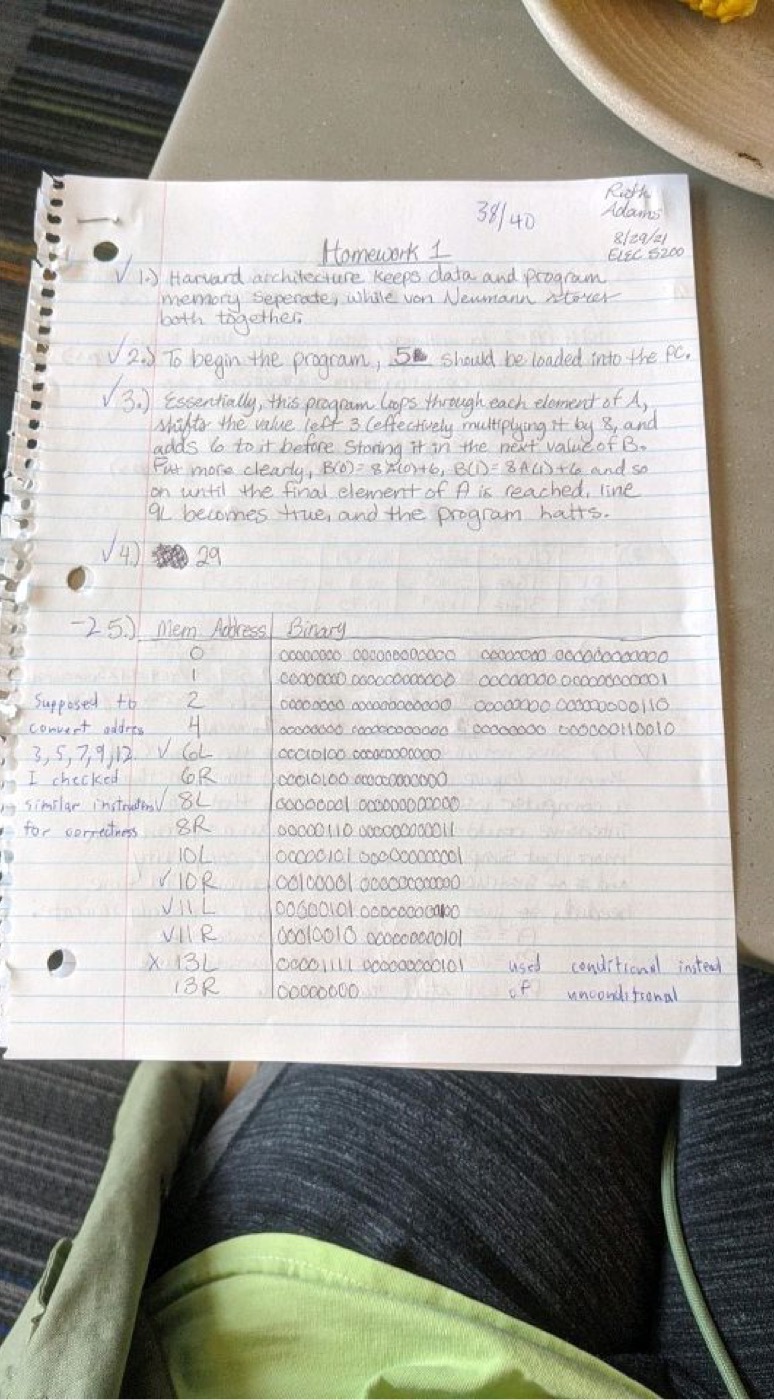 38/40
Ruth
Adams
8/29/21
ELEC 5200
Homework 1
✓ 1.) Harvard architecture keeps data and program
memory seperate, while von Neumann stores
both together.
✓ 2.) To begin the program, 5 should be loaded into the PC.
✓ 3.) Essentially, this program loops through each element of A,
shifts the value left 3 (effectively multiplying it by 8, and
adds 6 to it before storing it in the next value of B.
Put more clearly, B(0)=8A(0)+6, B(1)=8A(1)+6 and so
on until the final element of A is reached, line
9L becomes true, and the program halts.
✓ 4.) 29
-2 5.) Mem. Address Binary
0 00000000 000000000000 00000000 000000000000
1 00000000 000000000000 00000000 000000000001
Supposed to 2 00000000 000000000000 00000000 000000000110
convert addres 4 00000000 000000000000 00000000 000000110010
3,5,7,9,12. ✓ 6L 00010100 000000000000
I checked 6R 00010100 000000000000
similar instructions ✓ 8L 00000001 000000000000
for correctness 8R 00000110 000000000011
10L 00000101 000000000001
✓ 10R 00100001 000000000000
✓ 11L 00000101 000000000100
✓ 11R 00010010 000000000101
x 13L 00001111 000000000101 used conditional instead
13R 00000000 of unconditional